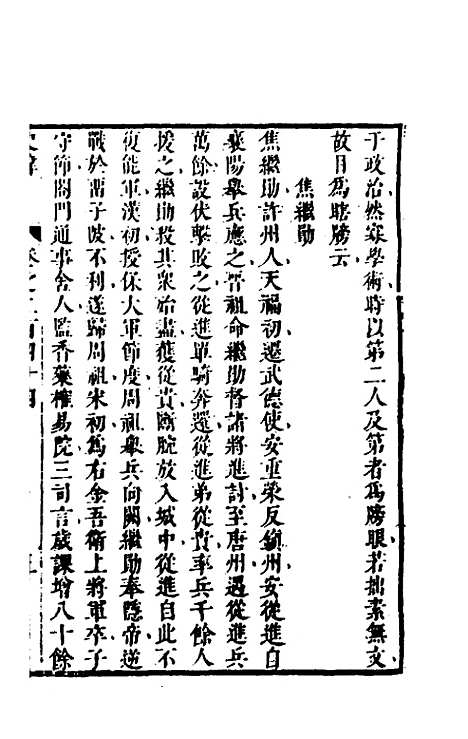 于政治然寡學術時以第二人及第者爲牓眼若拙素無文
故目爲瞎牓云
焦繼勛
焦繼勛許州人天福初遷武德使安重榮反鎮州安從進自
襄陽舉兵應之晉祖命繼勛督諸將進討至唐州遇從進兵
萬餘設伏擊敗之從進單騎奔還從進弟從貴率兵千餘人
援之繼勛殺其衆殆盡獲從貴斷腕放入城中從進自此不
復能軍漢初授保大軍節度周祖舉兵向闕繼勛奉隱帝逆
戰於畱子陂不利遂歸周祖宋初爲右金吾衛上將軍卒子
守節閤門通事舍人監香藥榷易院三司言歲課增八十餘
卷之二百四十四